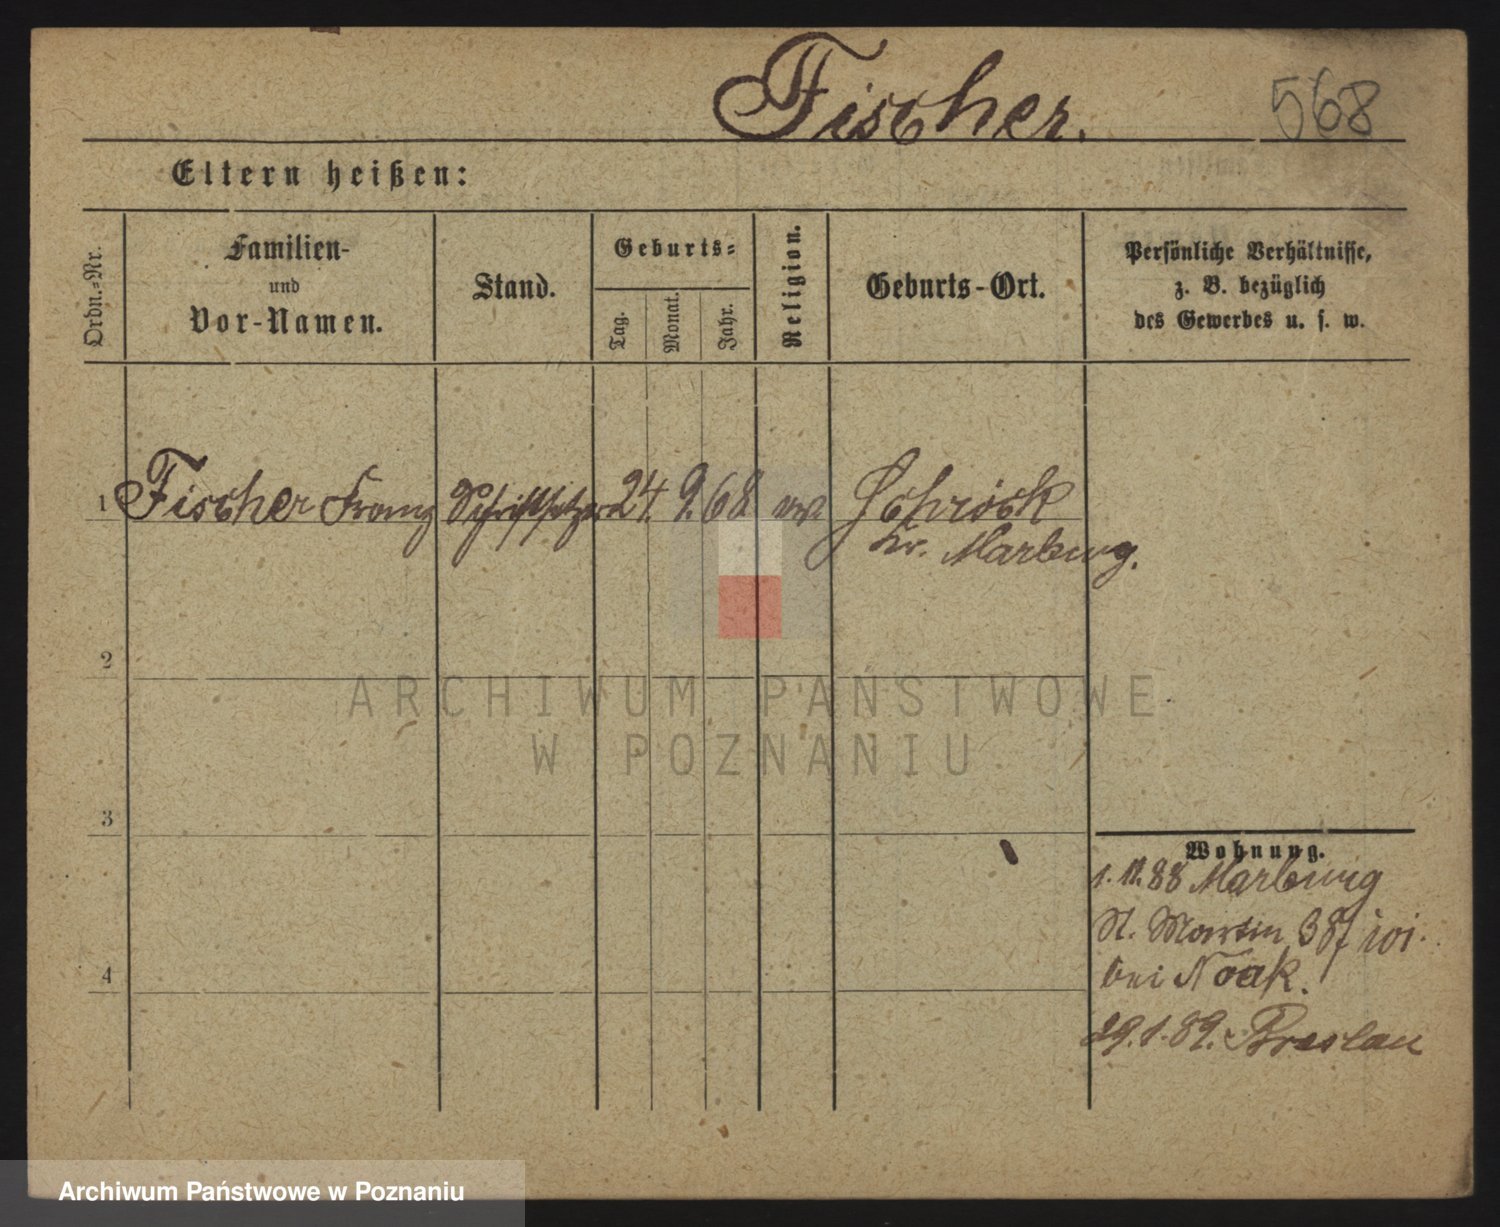 Fischer.
568
Eltern heißen:
Ordn.-Nr.
Familien-
und
Vor-Namen.
Stand.
Geburts-
Tag.
Monat.
Jahr.
Religion.
Geburts-Ort.
Persönliche Verhältnisse,
z. B. bezüglich
des Gewerbes u. s. w.
1 Fischer Franz Schriftsetzer 24. 9. 68 Schröck
Kr. Marburg.
2
3
4
Wohnung.
88 Marburg
St. Martin
bei Noak.
29.1.89. Breslau
ARCHIWUM PAŃSTWOWE
W POZNANIU
Archiwum Państwowe w Poznaniu